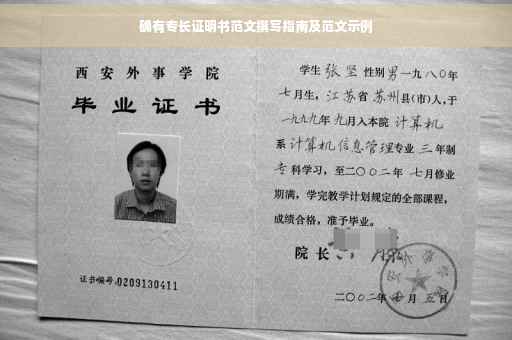 确有专长证明书范文撰写指南及范文示例
西安外事学院
毕业证书
证书编号:0209130411
学生 张坚 性别 男 一九八〇年
七月生，江苏省 苏州县(市)人,于
一九九九年 九月入本院 计算机
系 计算机信息管理专业 三 年制
专 科学习，至二〇〇二年 七月修业
期满，学完教学计划规定的全部课程，
成绩合格，准予毕业。
院长
二〇〇二年 月 五日